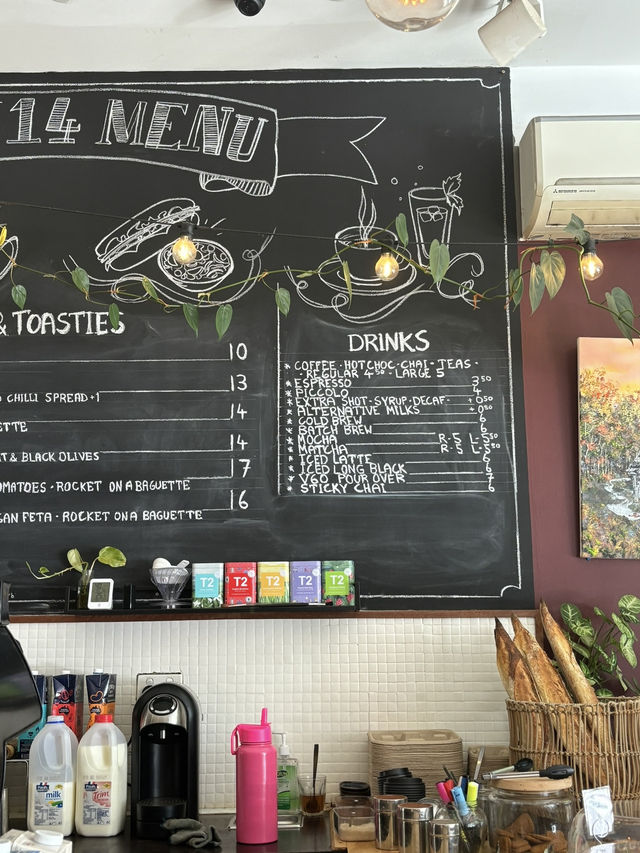 14 MENU
& TOASTIES
10
13
CHILLI SPREAD +1
14
14
T & BLACK OLIVES
17
OMATOES · ROCKET ON A BAGUETTE
16
GAN FETA · ROCKET ON A BAGUETTE
DRINKS
* COFFEE · HOTCHOC · CHAI · TEAS ·
· REGULAR 4⁵⁰ · LARGE 5
* ESPRESSO 3⁵⁰
* PICCOLO 4
* EXTRA SHOT · SYRUP · DECAF · +0⁵⁰
* ALTERNATIVE MILKS +0⁵⁰
* COLD BREW 6
* BATCH BREW 6
* MOCHA R-5 L-5⁵⁰
* MATCHA R-5 L-5⁵⁰
* ICED LATTE 6
* ICED LONG BLACK 6
* V60 POUR OVER 7
* STICKY CHAI 6
T2 T2 T2 T2 T2
milk
Trim